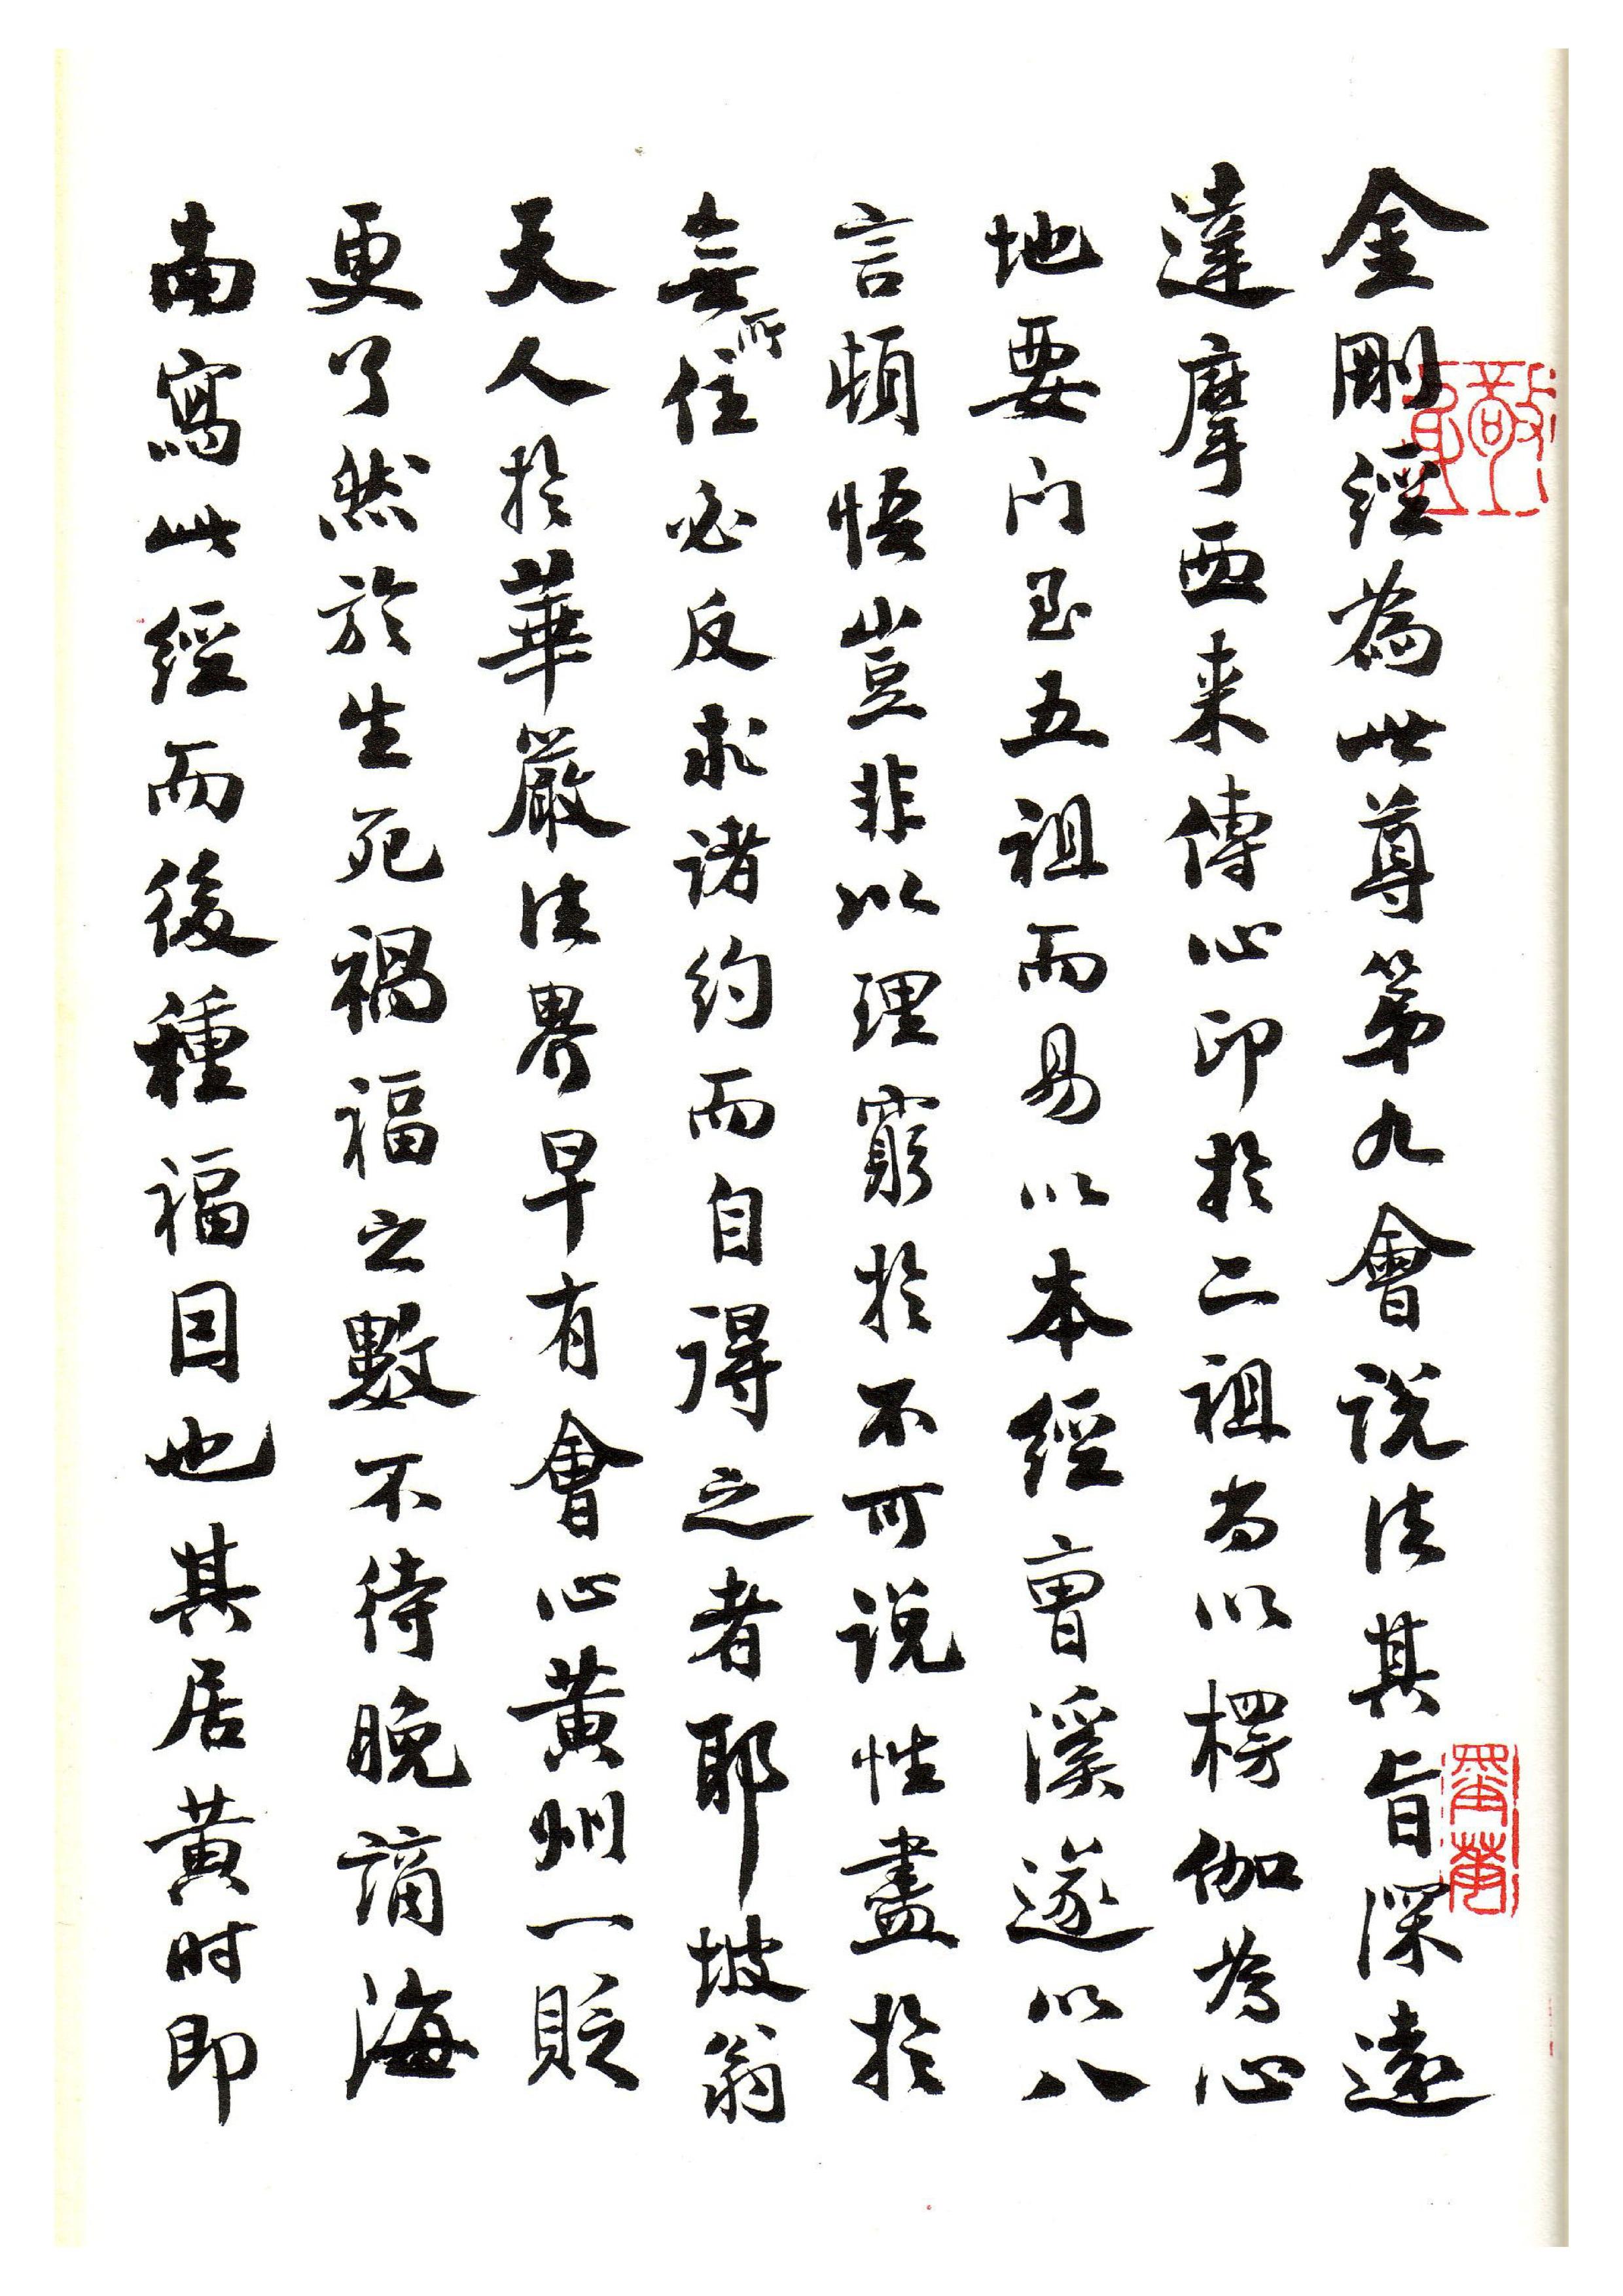 金剛經為世尊第九會說法其旨深遠
達摩西来傳心印於二祖尚以楞伽為心
地要门至五祖而易以本經曹溪遂以八
言頓悟豈非以理窮於不可说性盡於
無所住必反求诸约而自得之者耶坡翁
天人於華嚴法界早有會心黄州一貶
更了然於生死禍福之數不待晚謫海
南寫此經而後種福因也其居黄时即